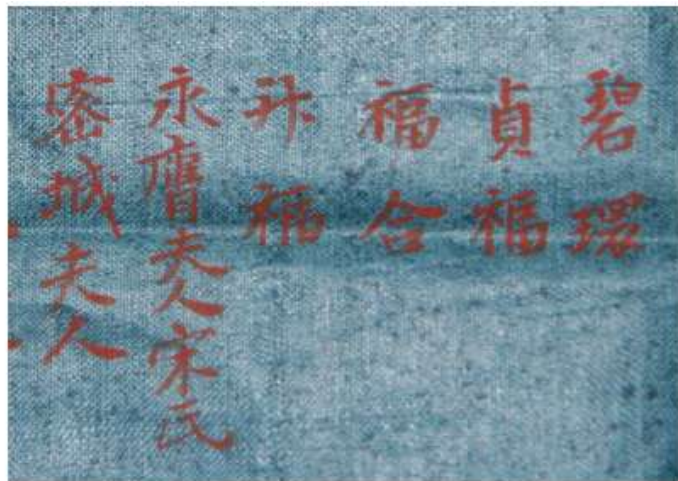 碧環
貞福
福合
升福
永膺夫人宋氏
密城夫人